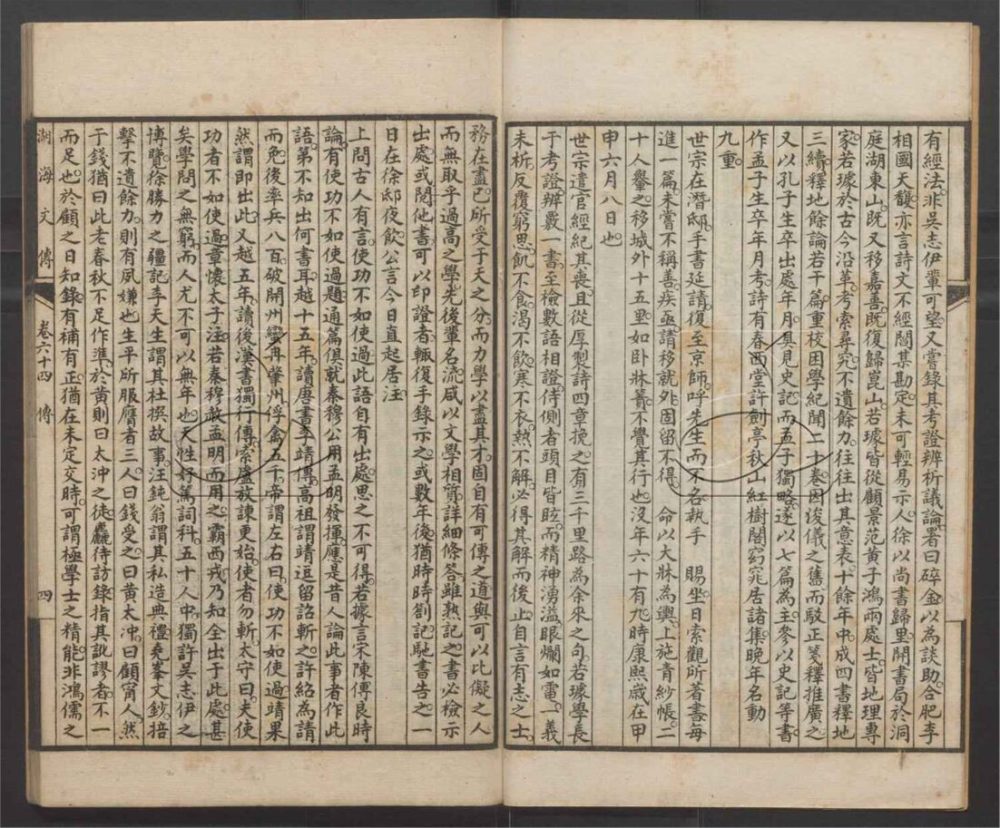 有經法非吳志伊輩可望又嘗錄其考證辨析議論署曰碎金以為談助合肥李
相國天馥亦言詩文不經閻某勘定未可輕易示人徐以尚書歸里開書局於洞
庭湖東山既又移嘉善既復歸崑山若璩皆從顧景范黃子鴻兩處士皆地理專
家若璩於古今沿革考索尋究不遺餘力往往出其意表十餘年中成四書釋地
三續釋地餘論若干篇重校困學紀聞二十卷因浚儀之舊而駁正箋釋推廣之
又以孔子生卒出處年月具見史記而孟子獨略遂以七篇為主參以史記等書
作孟子生卒年月考詩有眷西堂許劍亭秋山紅樹閣窈窕居諸集晚年名動
九重
世宗在潛邸手書延請復至京師呼先生而不名執手 賜坐日索觀所著書每
進一篇未嘗不稱善疾亟請移就外固留不得 命以大牀為輿上施青紗帳二
十人轝之移城外十五里如臥牀簀不覺其行也沒年六十有九時康熙歲在甲
申六月八日也
世宗遣官經紀其喪且從厚製詩四章挽之有三千里路為余來之句若璩學長
于考證辨覈一書至檢數語相證侍側者頭目皆眩而精神湧溢眼爛如電一義
未析反覆窮思飢不食渴不飲寒不衣熱不解必得其解而後止自言有志之士
務在盡己所受于天之分而力學以盡其才固自有可傳之道與可以比儗之人
而無取乎過高之學先後輩名流咸以文學相質詳細條答雖熟記之書必檢示
出處或閱他書可以印證者輒復手錄示之或數年後猶時時劄記馳書告之一
日在徐邸夜飲公言今日直起居注
上問古人有言使功不如使過此語自有出處思之不可得若據言宋陳傅良時
論有使功不如使過題通篇俱就秦穆公用孟明發揮應是昔人論此事者作此
語第不知出何書耳越十五年讀唐書李靖傳高祖謂靖逗留詔斬之許紹為請
而免後率兵八百破開州蠻冉肇州俘禽五千帝謂左右曰使功不如使過靖果
然謂即出此又越五年讀後漢書獨行傳索盧放諫更始使者勿斬太守曰夫使
功者不如使過章懷太子注若秦穆赦孟明而用之霸西戎乃知全出于此處甚
矣學問之無窮而人尤不可以無年也天性好罵詞科五十人中獨許吳志伊之
博覽徐勝力之疆記李天生謂其杜撰故事汪鈍翁謂其私造典禮堯峯文鈔掊
擊不遺餘力則有夙嫌也生平所服膺者三人曰錢受之曰黃太沖曰顧甯人然
于錢猶曰此老春秋不足作準於黃則曰太沖之徒麤待訪錄指其訛謬者不一
而足也於顧之日知錄有補有正猶在未定交時可謂極學士之精能非鴻儒之
湖海文傳 卷六十四 傳 四